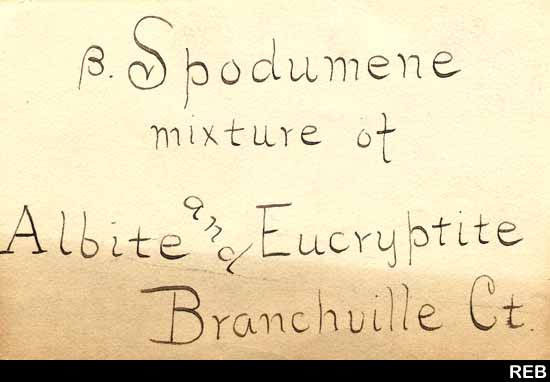 β. Spodumene
mixture of
Albite and Eucryptite
Branchville Ct.
REB